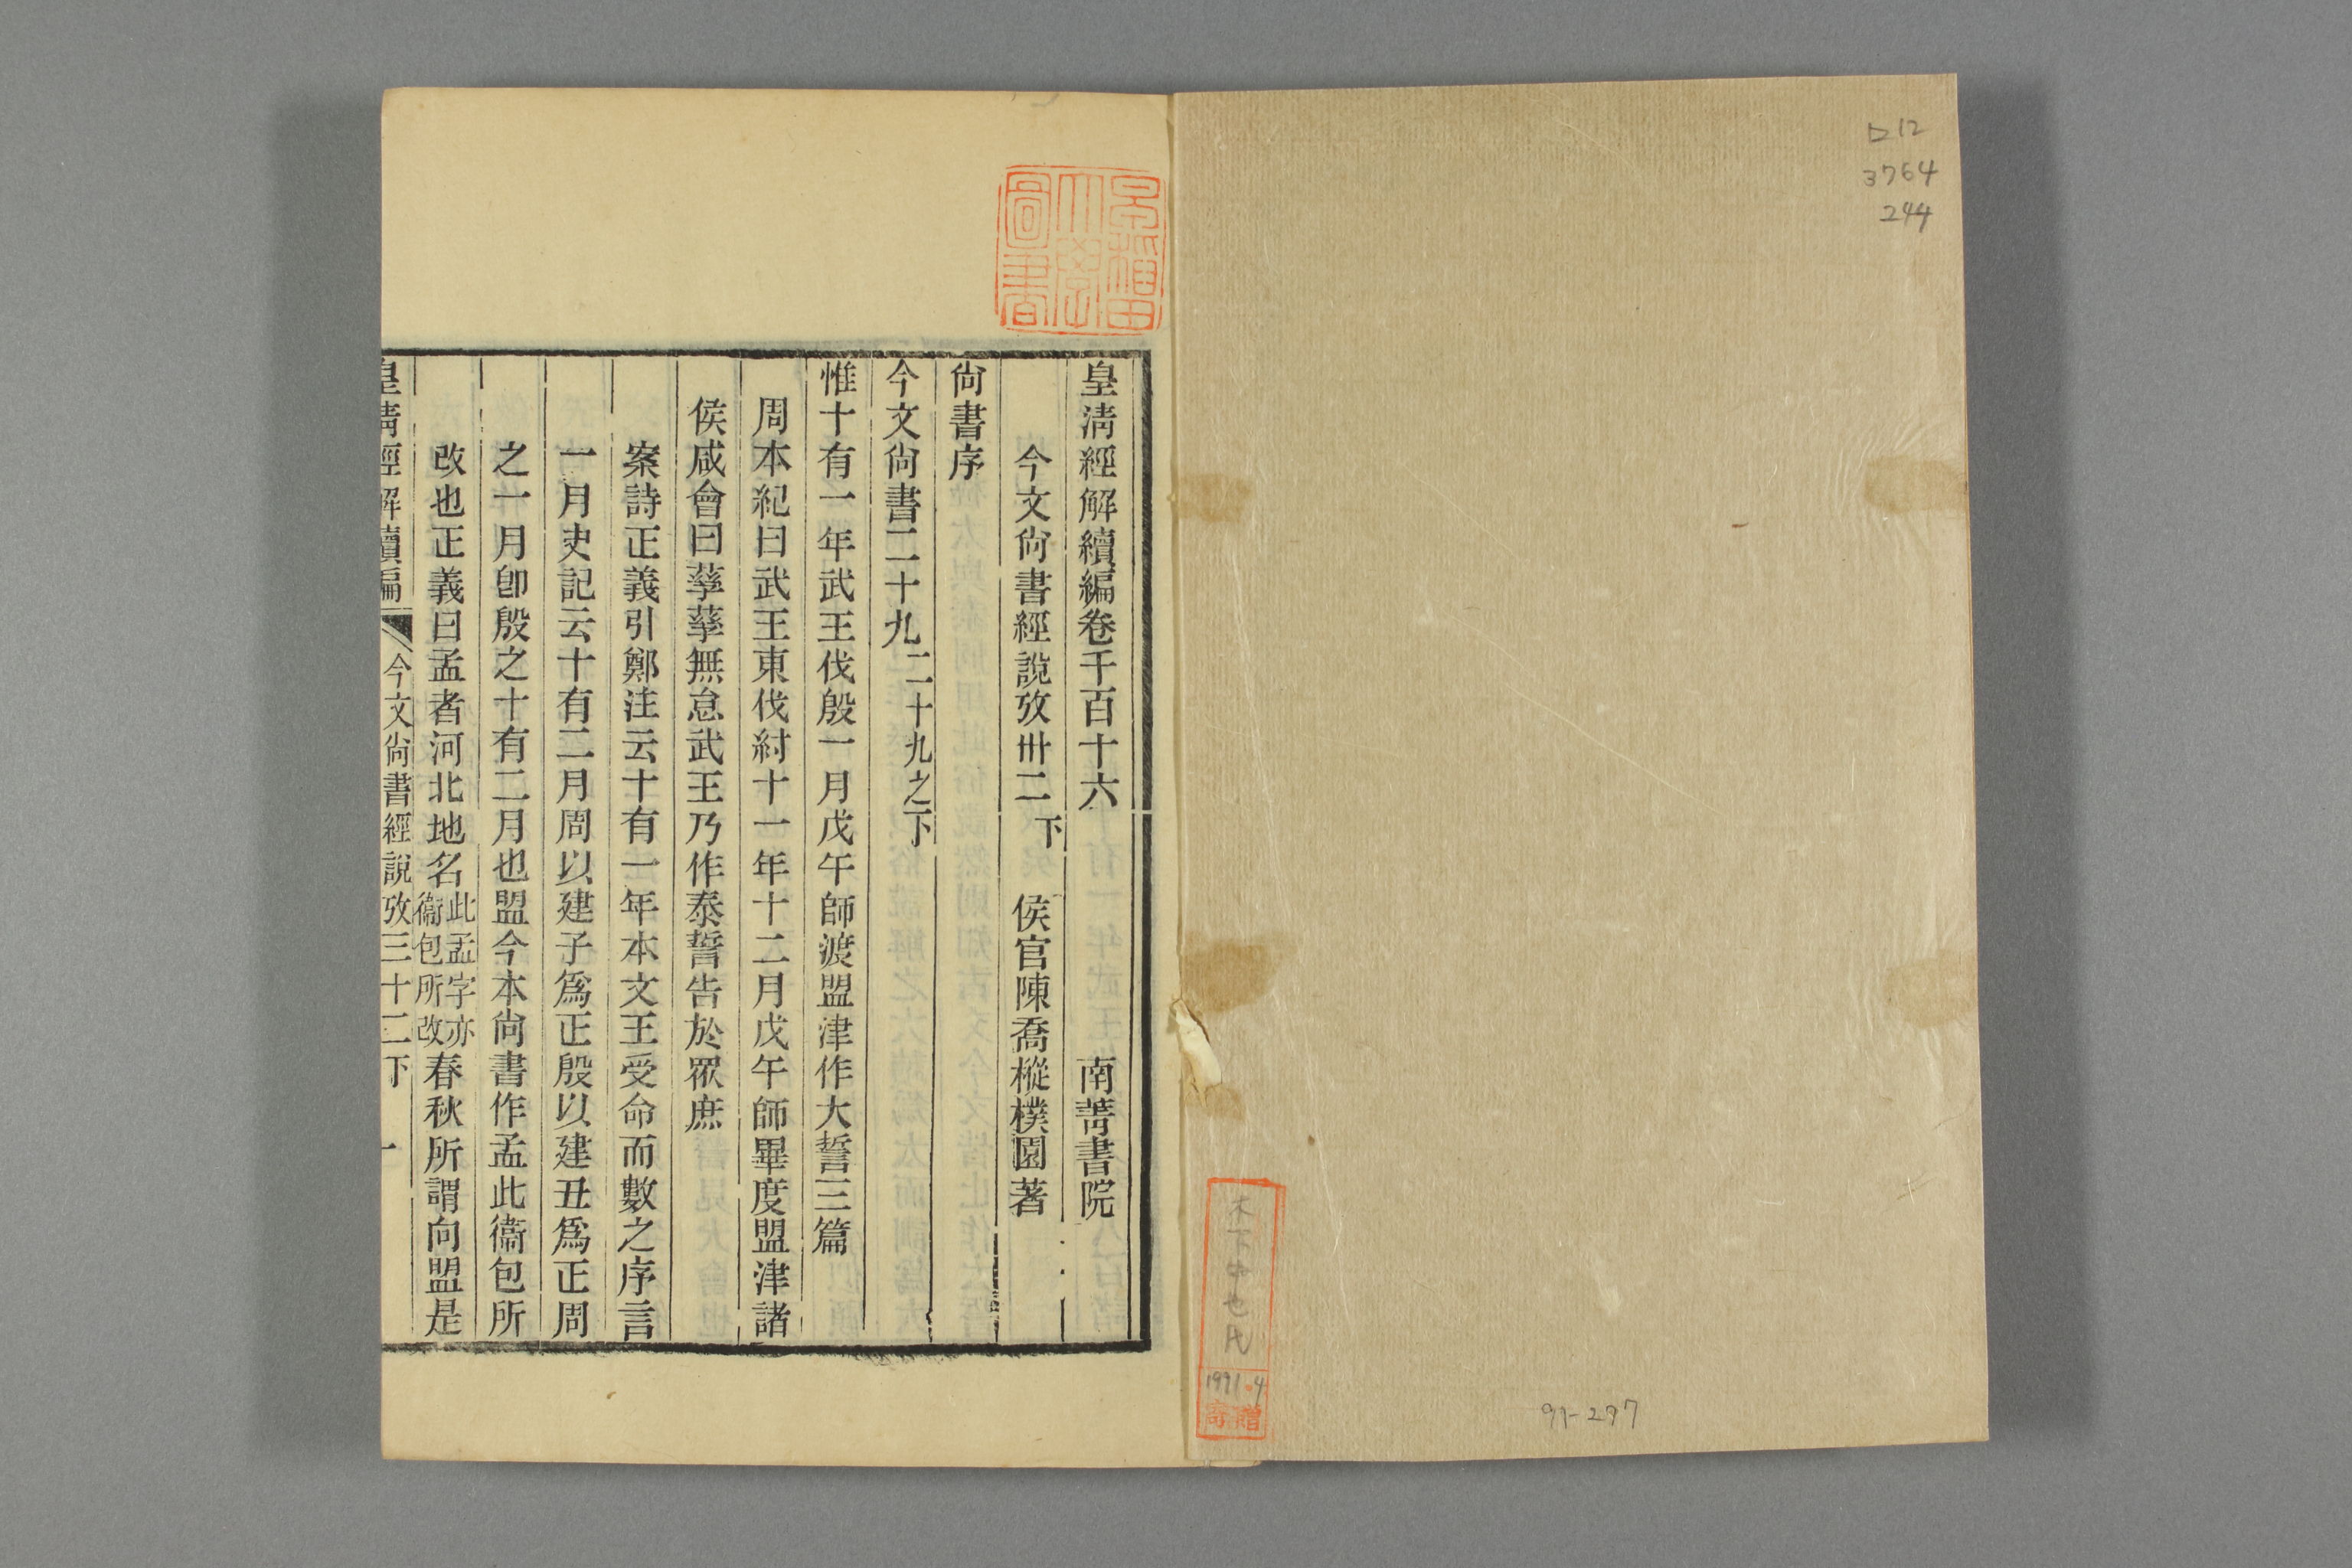 ロ12
3764
244
91-297
木下中也氏
1991.4
寄贈
早稲田大學圖書
皇淸經解續編卷千百十六　南菁書院
今文尙書經說攷卅二下　侯官陳喬樅樸園著
尙書序
今文尙書二十九二十九之下
惟十有一年武王伐殷一月戊午師渡盟津作大誓三篇
周本紀曰武王東伐紂十一年十二月戊午師畢度盟津諸
侯咸會曰孳孳無怠武王乃作泰誓告於眾庶
案詩正義引鄭注云十有一年本文王受命而數之序言
一月史記云十有二月周以建子爲正殷以建丑爲正周
之一月卽殷之十有二月也盟今本尙書作孟此衞包所
改也正義曰孟者河北地名此孟字亦衞包所改春秋所謂向盟是
皇淸經解續編　今文尙書經說攷三十二下　一